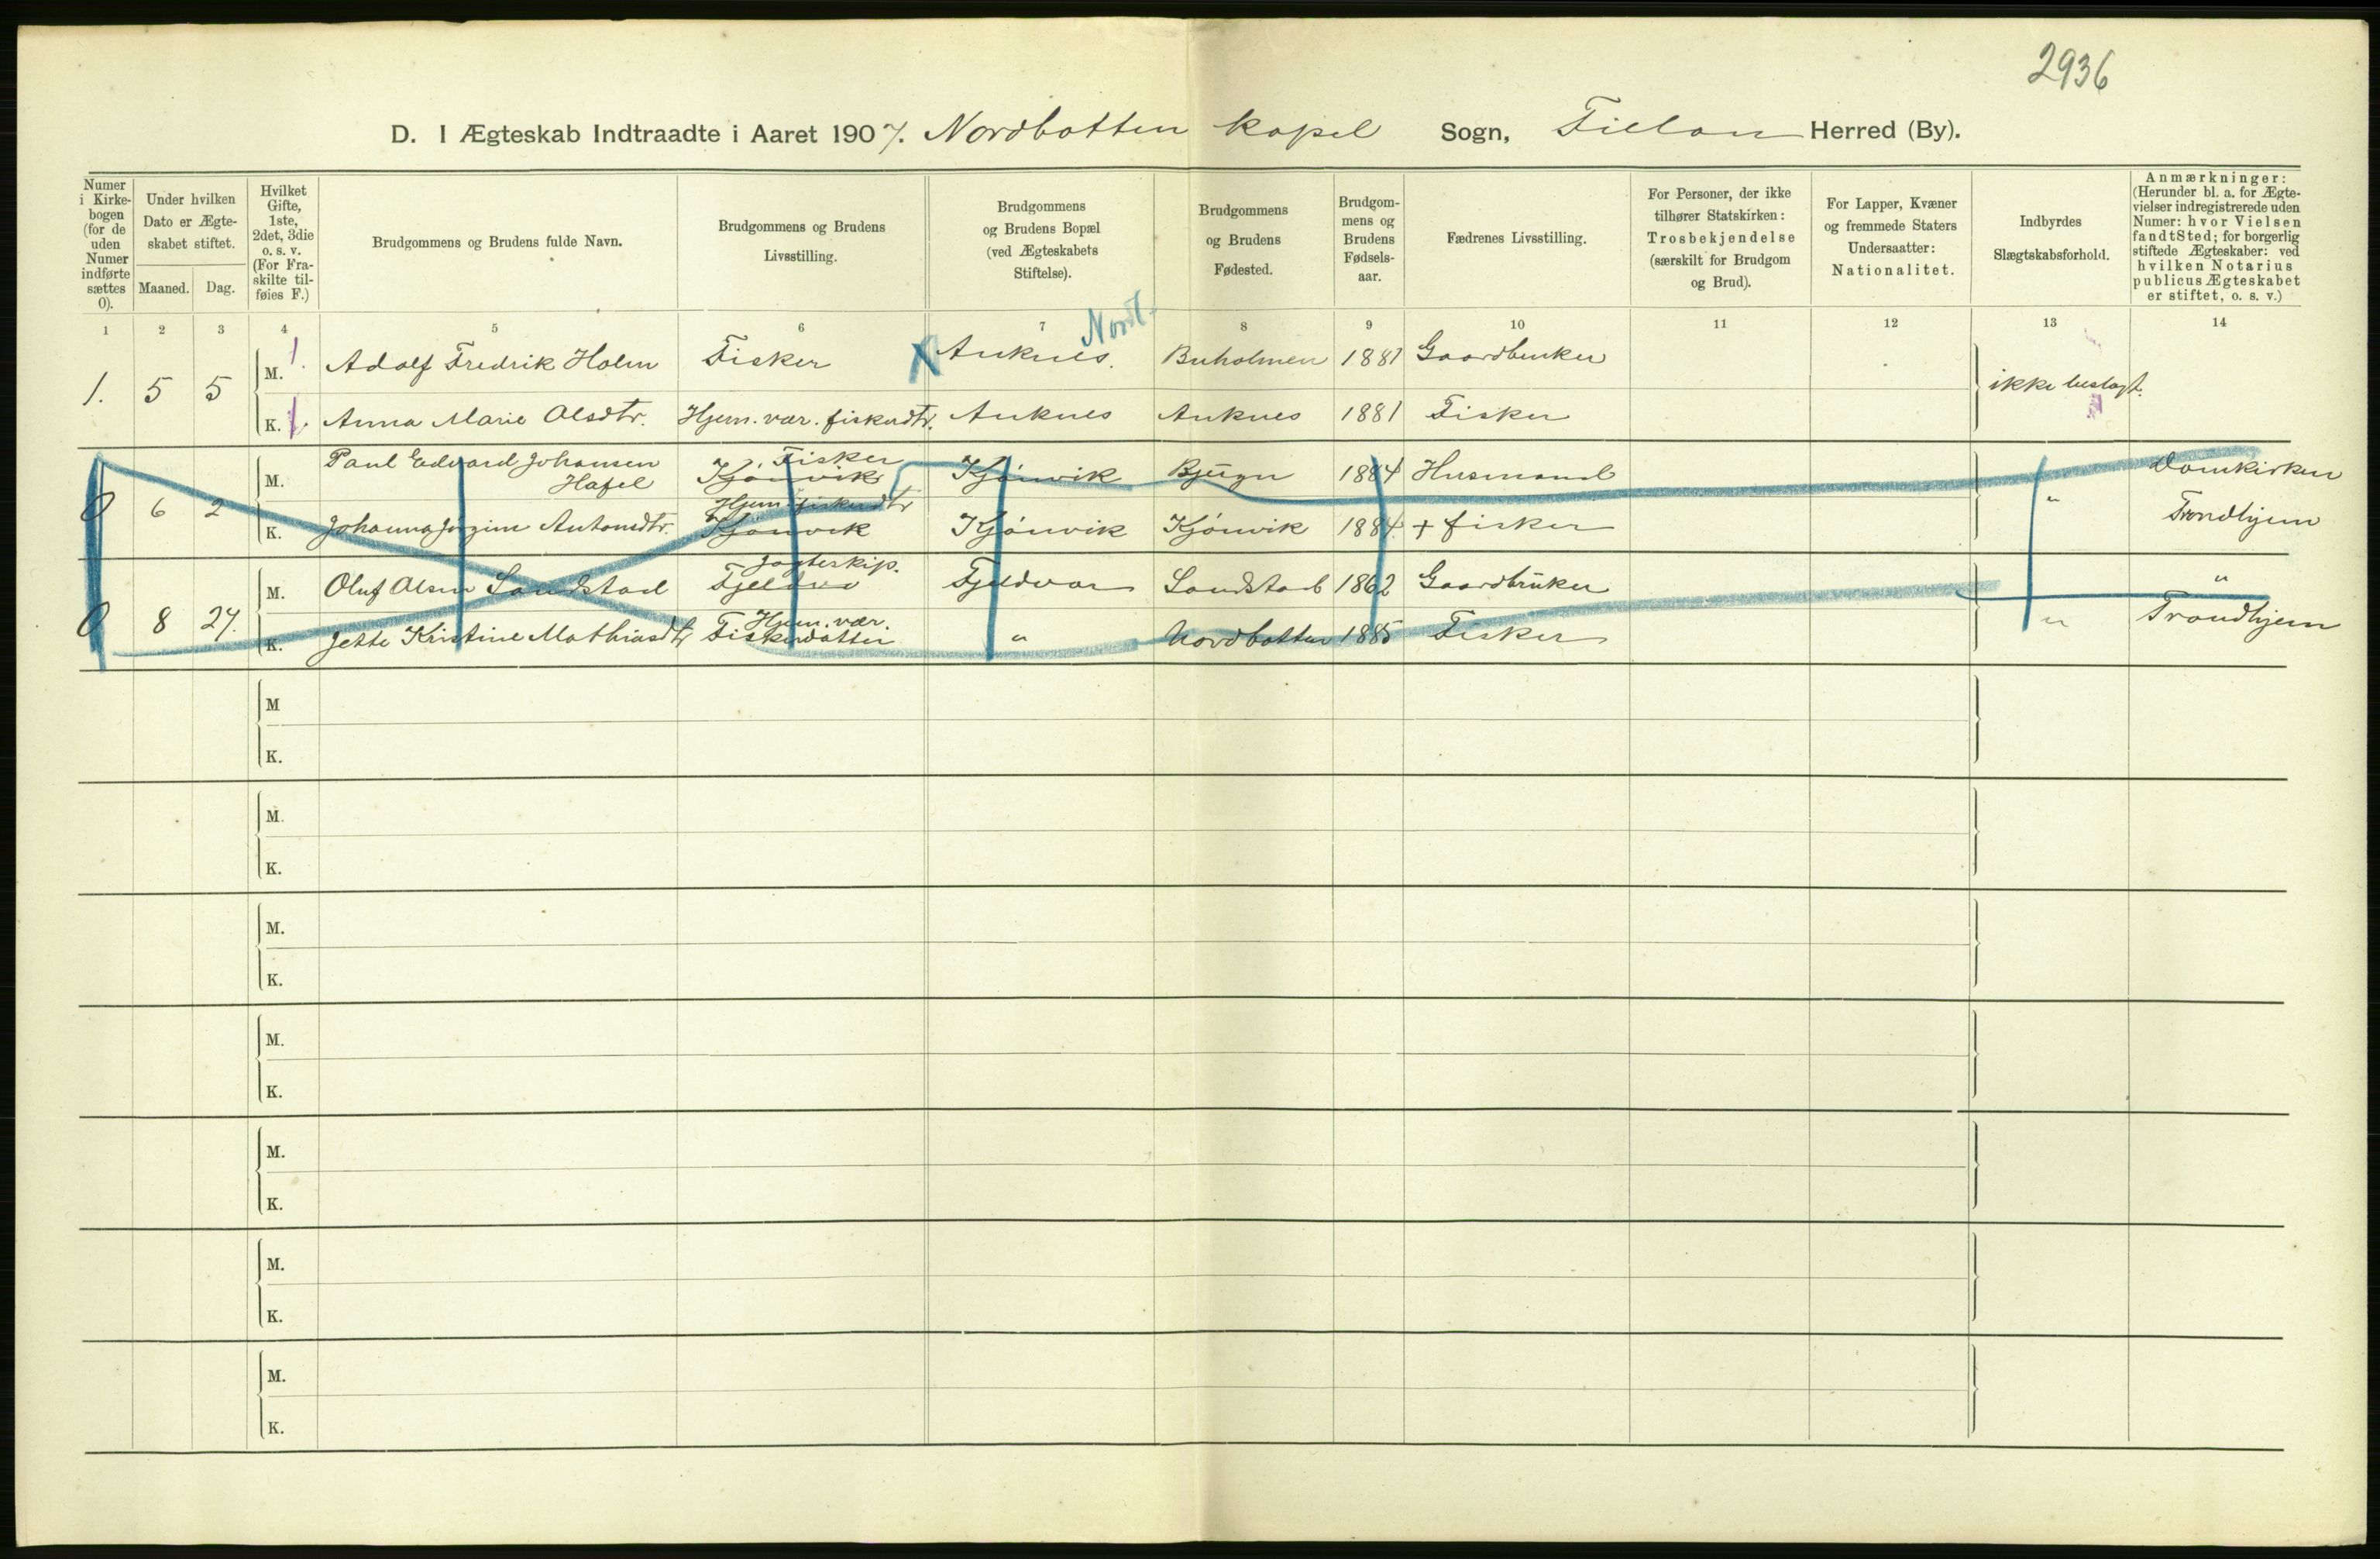 2936
D. I Ægteskab Indtraadte i Aaret 1907. Nordbotten kapel Sogn, Fillan Herred (By).
Numer i Kirkebogen (for de uden Numer indførte sættes 0).
Under hvilken Dato er Ægteskabet stiftet.
Maaned. Dag.
Hvilket Gifte, 1ste, 2det, 3die o. s. v. (For Fraskilte tilføies F.)
Brudgommens og Brudens fulde Navn.
Brudgommens og Brudens Livsstilling.
Brudgommens og Brudens Bopæl (ved Ægteskabets Stiftelse).
Brudgommens og Brudens Fødested.
Brudgommens og Brudens Fødselsaar.
Fædrenes Livsstilling.
For Personer, der ikke tilhører Statskirken: Trosbekjendelse (særskilt for Brudgom og Brud).
For Lapper, Kvæner og fremmede Staters Undersaatter: Nationalitet.
Indbyrdes Slægtskabsforhold.
Anmærkninger: (Herunder bl. a. for Ægtevielser indregistrerede uden Numer: hvor Vielsen fandt Sted; for borgerlig stiftede Ægteskaber: ved hvilken Notarius publicus Ægteskabet er stiftet, o. s. v.)
1 2 3 4 5 6 7 8 9 10 11 12 13 14
Nord-
1. 5 5 M. 1. Adolf Fredrik Holm Fisker X Auknes. Buholmen 1881 Gaardbruker ikke beslagt.
K. 1. Anna Marie Olsdtr. Hjem. vær. fiskerdtr. Auknes Auknes 1881 Fisker
0 6 2 M. Paul Edvard Johansen Hafel Fisker Kjönvik Kjönvik Bjugn 1884 Husmand " Domkirken
K. Johanna Jörgine Antonsdtr. Hjem. fiskerdtr Kjönvik Kjönvik Kjönvik 1884. + fisker Trondhjem
0 8 24. M. Oluf Olsen Sandstad Jagteskip. Fjeldvær Fjeldvær Sandstad 1862 Gaardbruker "
K. Jette Kristine Mathiasdtr Hjem. vær. Fiskerdatter " Nordbotten 1885 Fisker " Trondhjem
M
K.
M.
K.
M.
K.
M.
K.
M.
K.
M.
K.
M.
K.